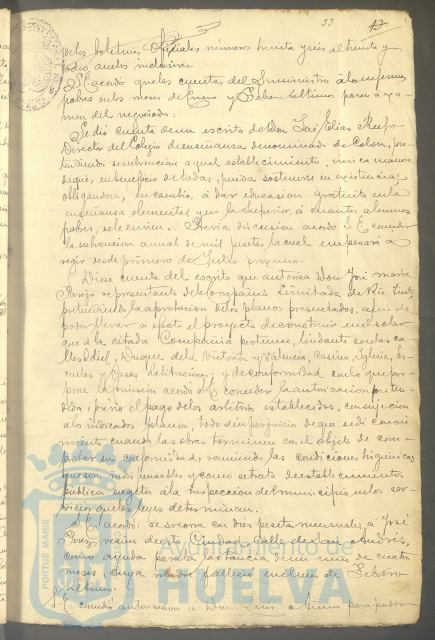 33 17
de los boletines Oficiales números treinta y seis al treinta y
ocho ambos inclusives.
S. E. acordó que las cuentas del Suministro a los enfermos
pobres en los meses de Enero y Febrero últimos pasen a exa-
men del negociado.
Se dió cuenta de un escrito de Don José Elías
Director del Colegio de enseñanza denominado de Colon, pre-
tendiendo se subvencione aquel establecimiento, única manera
de que, en beneficio de todos, pueda sostenerse su existencia;
obligandose, en cambio, á dar educación gratuita en la
enseñanza elemental y en la Superior, á cuantos alumnos
pobres, se le envien. Previa discusion acordó S. E. conceder
la subvencion anual de mil pesetas, la cual empezará a
regir desde primero de Julio proximo.
Diose cuenta del escrito que autoriza Don José Maria
Parejo representante de la Compañia Limitada de Rio-Tinto
pretendiendo la aprobacion de los planos presentados, a fin de
poder llevar a efecto el proyecto de construir en el solar
que á la citada Compañia pertenece, lindante con las ca-
lles Odiel, Duque de la Victoria y Valencia, Casino, Iglesia, Es-
cuelas y Casas habitaciones; y de conformidad con lo que pro-
pone la Comision acordó S. E. conceder la autorizacion preten-
dida, previo el pago de los arbitrios establecidos, con sujecion
a los indicados planos, todo sin perjuicio de que se dé conoci-
miento cuando las obras terminen con el objeto de com-
probar su conformidad, reuniendo las condiciones higienicas
que son indispensables y como se trata de establecimientos
publicos sugetos á la inspeccion del municipio en los ser-
vicios que las leyes determinan.
S. E. acordó se socorra con diez pesetas mensuales, a José
Perez, vecino de esta Ciudad, Calle de San Andrés,
como ayuda para la lactancia de un niño de cuatro
meses, cuya madre falleció en de Febrero
ultimo.
S. E. concedió autorizacion a Don para poder
PORTUS MARIS
Ayuntamiento de
HUELVA